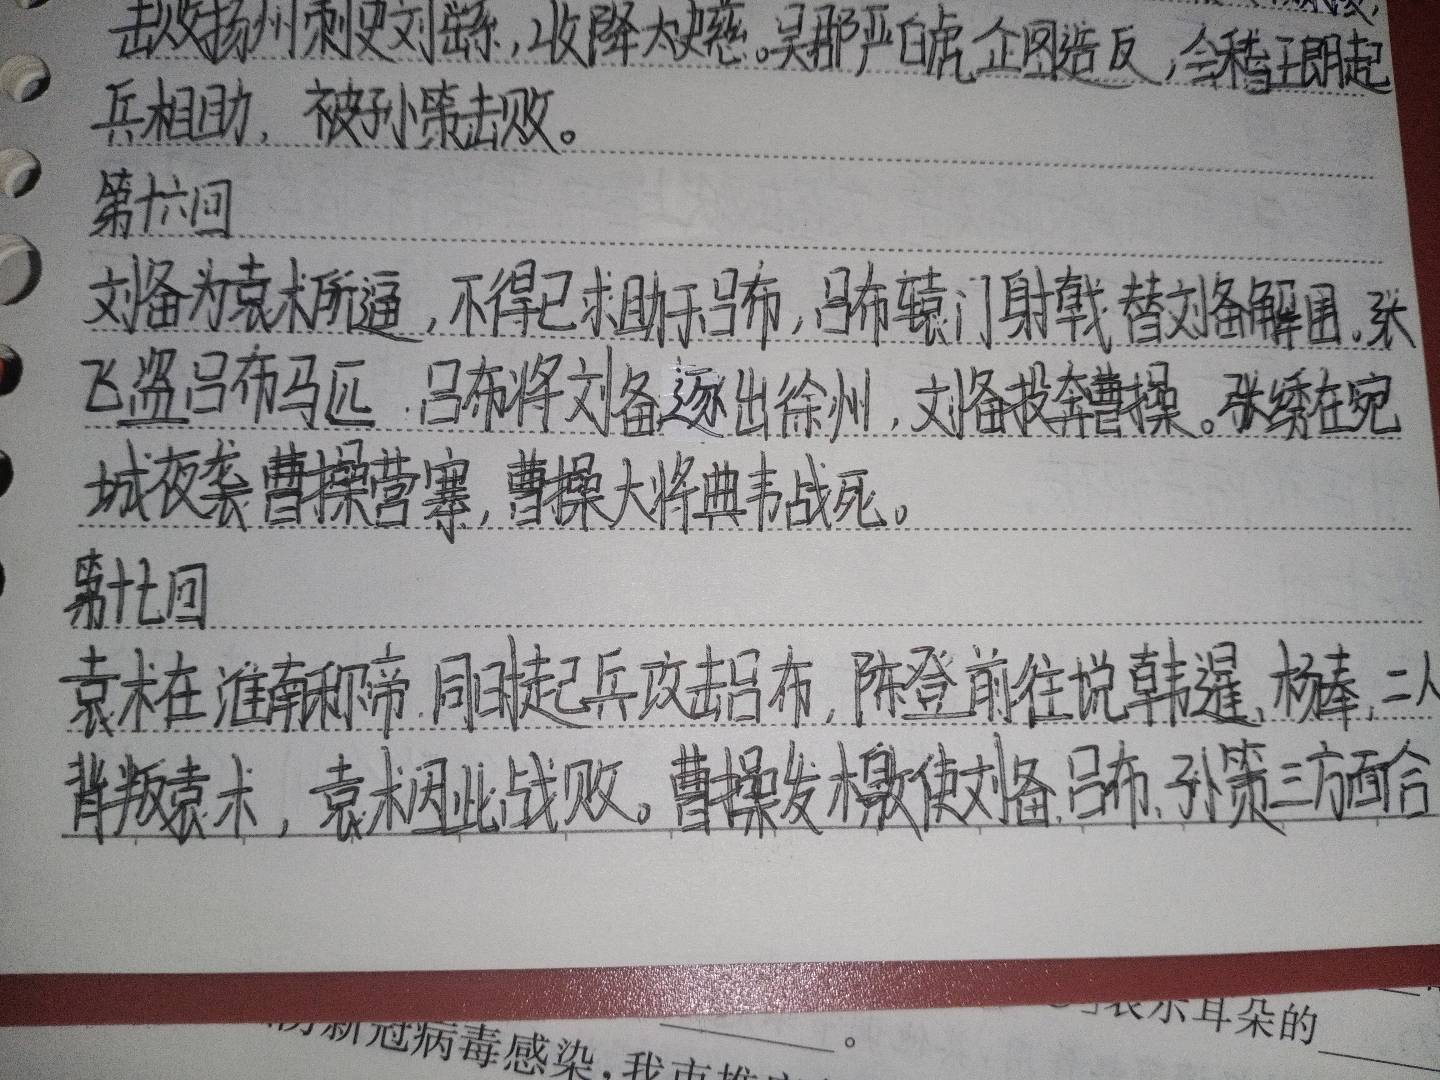 击败扬州刺史刘繇，收降太史慈。吴郡严白虎企图造反，会稽王朗起
兵相助，被孙策击败。
第十六回
刘备为袁术所逼，不得已求助于吕布，吕布辕门射戟替刘备解围。张
飞盗吕布马匹，吕布将刘备逐出徐州，刘备投奔曹操。张绣在宛
城夜袭曹操营寨，曹操大将典韦战死。
第十七回
袁术在淮南称帝，同时起兵攻击吕布，陈登前往说韩暹、杨奉，二人
背叛袁术，袁术因此战败。曹操发檄使刘备、吕布、孙策三方面合
表示耳朵的
新冠病毒感染，我市